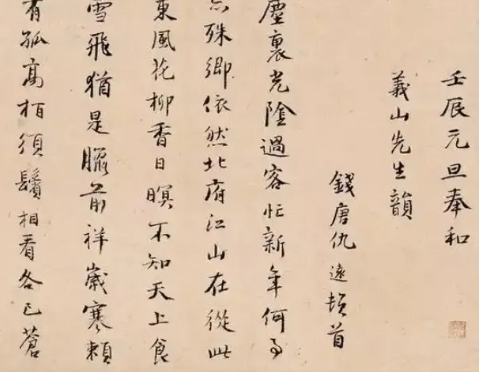 壬辰元旦奉和
義山先生韻
錢唐仇遠頓首
塵裏光陰過客忙新年何事
殊鄉依然北府江山在從此
東風花柳香日暝不知天上食
雪飛猶是臘前祥歲寒賴
有孤高栢須鬢相看各已蒼